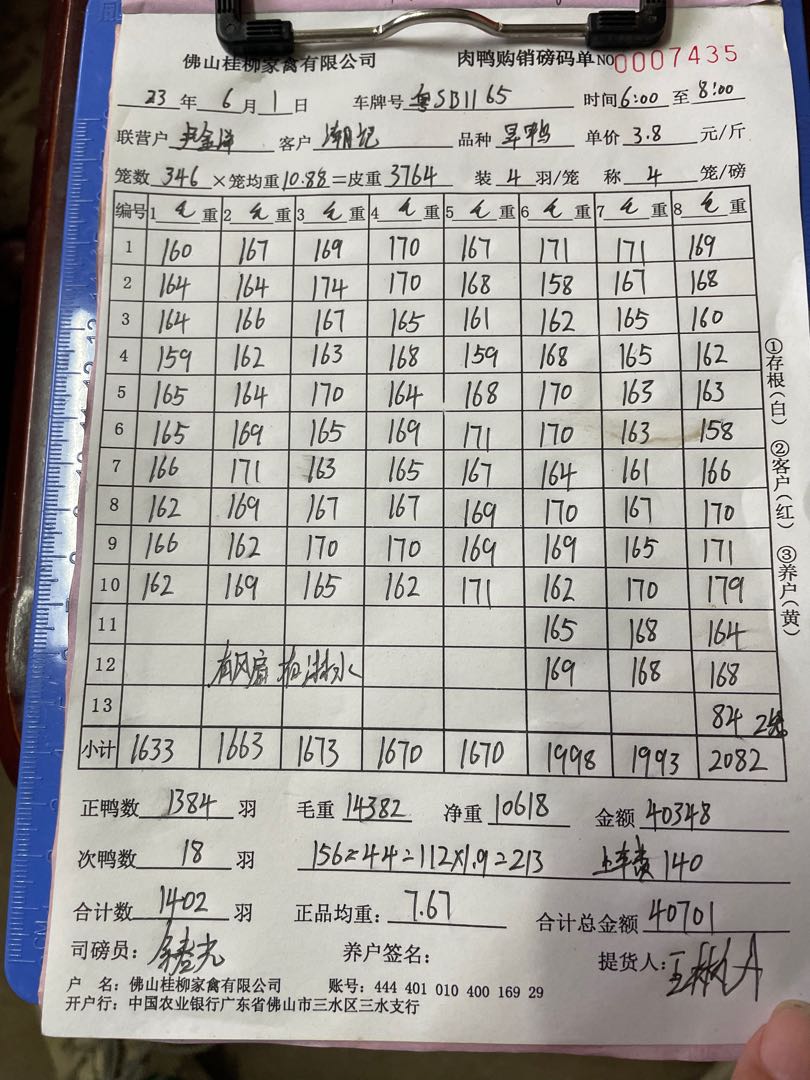 佛山桂柳家禽有限公司 肉鸭购销磅码单 NO 0007435
23 年 6 月 1 日 车牌号 粤SB1165 时间 6:00 至 8:00
联营户 客户 潮记 品种 旱鸭 单价 3.8 元/斤
笼数 346 ×笼均重 10.88 =皮重 3764 装 4 羽/笼 称 4 笼/磅
编号 1 毛 重 2 毛 重 3 毛 重 4 毛 重 5 毛 重 6 毛 重 7 毛 重 8 毛 重
1 160 167 169 170 167 171 171 169
2 164 164 174 170 168 158 167 168
3 164 166 167 165 161 162 165 160
4 159 162 163 168 159 168 165 162
5 165 164 170 164 168 170 163 163
6 165 169 165 169 171 170 163 158
7 166 171 163 165 167 164 161 166
8 162 169 167 167 169 170 167 170
9 166 162 170 170 169 169 165 171
10 162 169 165 162 171 162 170 179
11 165 168 164
12 有风扇 有淋水 169 168 168
13 84 2笼
小计 1633 1663 1673 1670 1670 1998 1993 2082
正鸭数 1384 羽 毛重 14382 净重 10618 金额 40348
次鸭数 18 羽 156-44=112×1.9=213 上车费 140
合计数 1402 羽 正品均重: 7.67 合计总金额 40701
司磅员: 养户签名: 提货人:
户 名: 佛山桂柳家禽有限公司 账号: 444 401 010 400 169 29
开户行: 中国农业银行广东省佛山市三水区三水支行
①存根(白) ②客户(红) ③养户(黄)